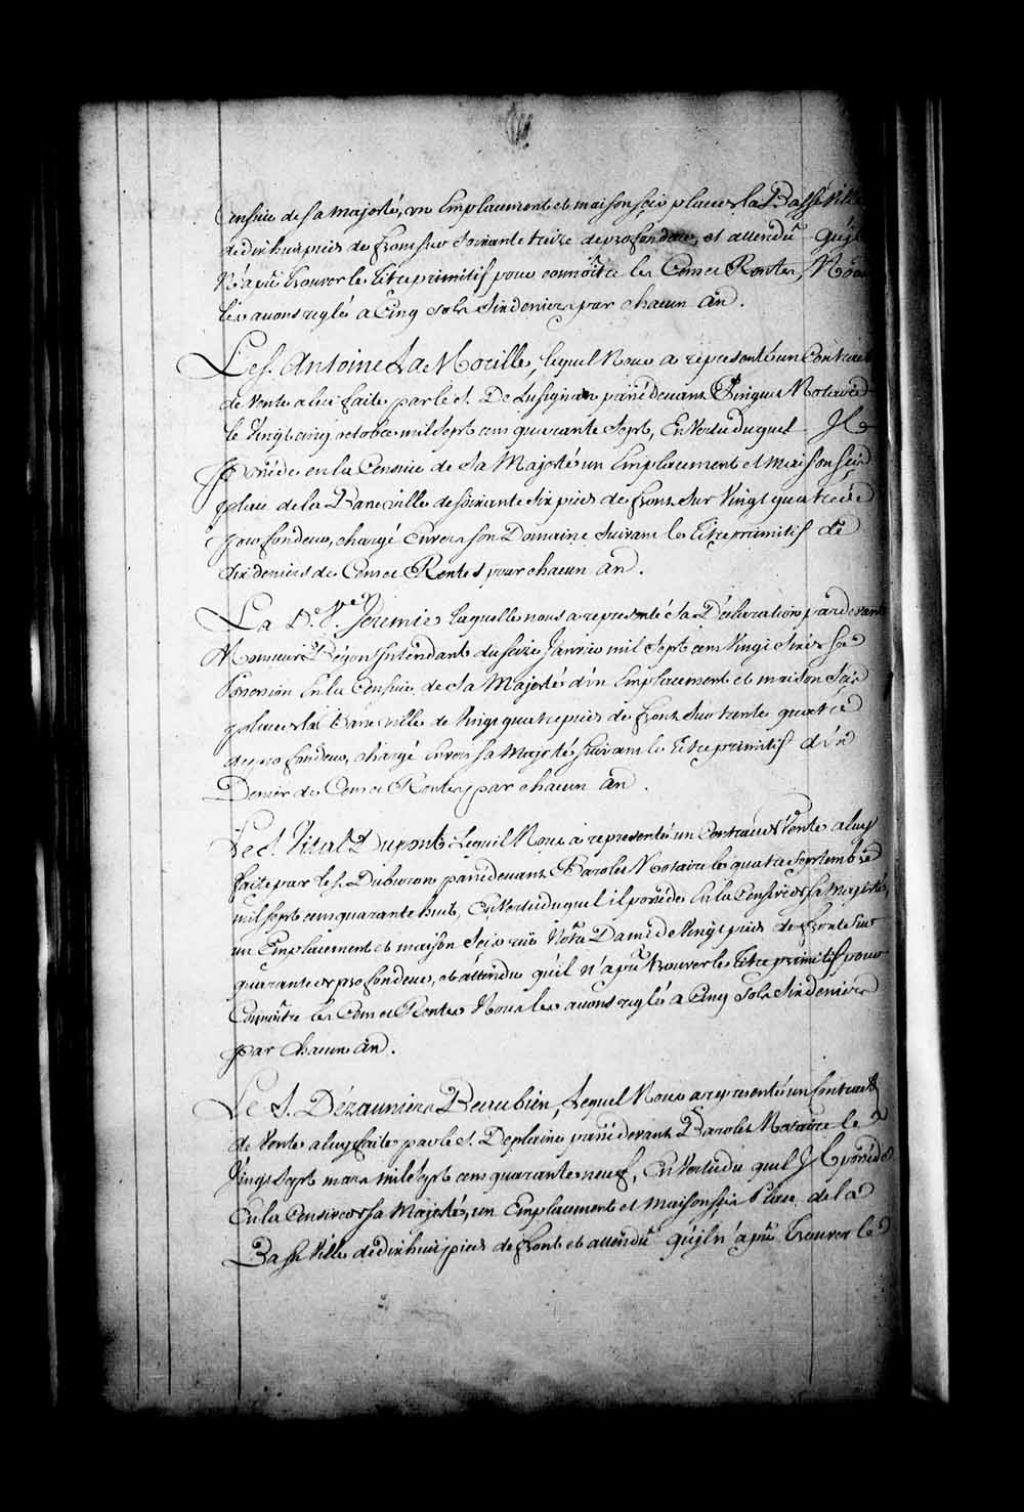 Censive de sa majesté, un Emplacement et maison scis place de la Basse Ville
de dix huit pieds de front sur soixante treize de profondeur, et attendu qu'il
N'a pû trouver le titre primitif pour connoitre les Cens et Rentes, Nous
les avons reglés a Cinq sols six deniers par chacun an.
Le S. Antoine La Morille, lequel Nous a representé un Contrat
de Vente a lui faite par le S. De Lusignan passé devant Pinguet Notaire
le Vingt cinq octobre mil sept cent quarante sept, En Vertu duquel Il
possède en la Censive de Sa Majesté un Emplacement et Maison scis
place de la Basse ville de soixante six pieds de front Sur Vingt quatre de
profondeur, chargé Envers son Domaine Suivant le titre primitif de
Six deniers de Cens et Rentes pour chacun an.
La De Ve Jeremie laquelle nous a representé sa Déclaration pardevant
Monsieur Bégon Intendant du seize Janvier mil Sept cent Vingt trois Sa
Possession En la Censive de Sa Majesté d'un Emplacement et maison Scis
place de la Basse ville de Vingt quatre pieds de front Sur trente quatre
de profondeur, chargé Envers sa Majesté Suivant le Titre primitif d'un
Denier de Cens et Rentes par chacun an.
Le S. Vital Dupont Lequel Nous a representé un Contrat de Vente a luy
faite par le S. Duburon passé devant Barolet Notaire le quatre Septembre
mil sept cent quarante huit, En Vertu duquel il possède En la Censive de sa Majesté,
un Emplacement et maison Scis rue Notre Dame de Vingt pieds de front Sur
quarante de profondeur, et attendu qu'il n'a pû trouver le titre primitif pour
Connoitre les Cens et Rentes Nous les avons reglé a Cinq Sols Six deniers
par chacun an.
Le S. Dézauniers Beaubien, Lequel Nous a representé un Contract
de Vente a luy faite par le S. Deplaine passé devant Barolet Notaire le
Vingt Sept mars mil Sept cent quarante neuf, En Vertu du quel Il possède
En la Censive de sa Majesté, un Emplacement et maison scis Place de la
Basse Ville de dix huit pieds de front et attendû qu'il n'a pû trouver le